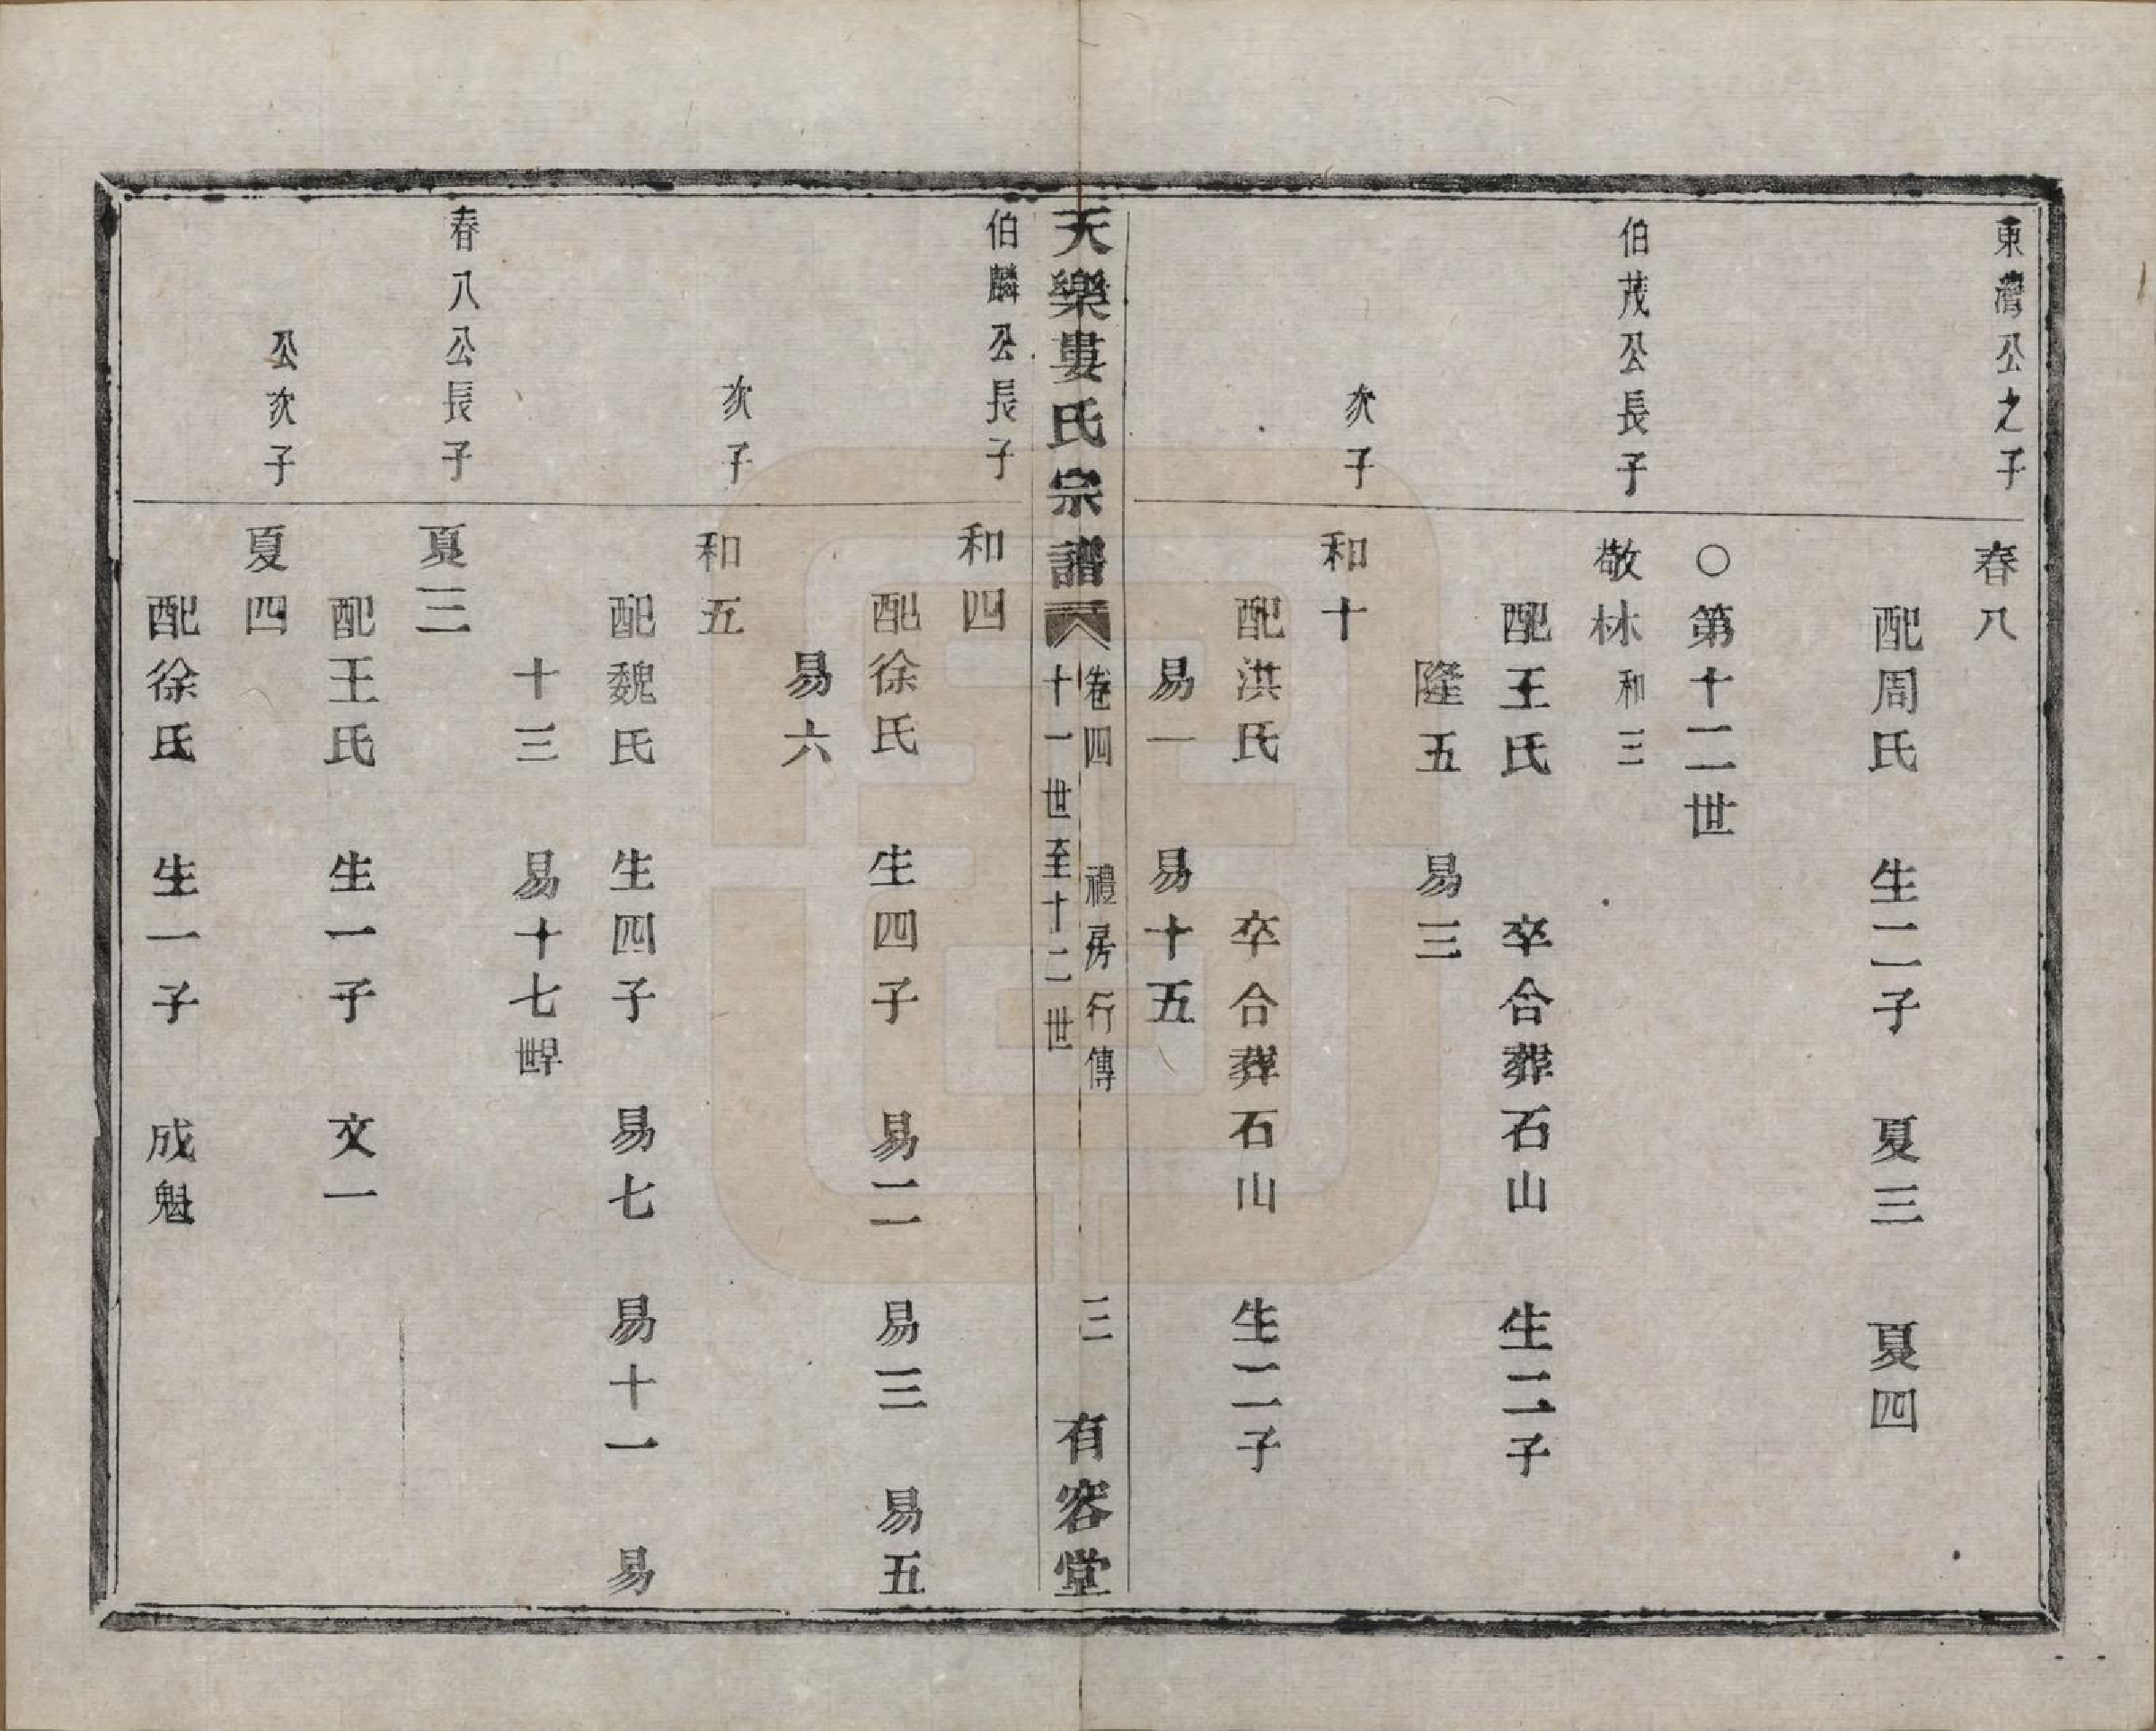 東灣公之子
春八
配周氏 生二子 夏三 夏四
○第十二世
伯茂公長子
敬林 和三
配王氏 卒合葬石山 生二子
隆五 易三
次子
和十
配洪氏 卒合葬石山 生二子
易一 易十五
天樂婁氏宗譜 卷四 禮房行傳 三 有容堂
十一世至十二世
伯麟公長子
和四
配徐氏 生四子 易二 易三 易五
易六
次子
和五
配魏氏 生四子 易七 易十一 易
十三 易十七 早世
春八公長子
夏三
配王氏 生一子 文一
公次子
夏四
配徐氏 生一子 成魁